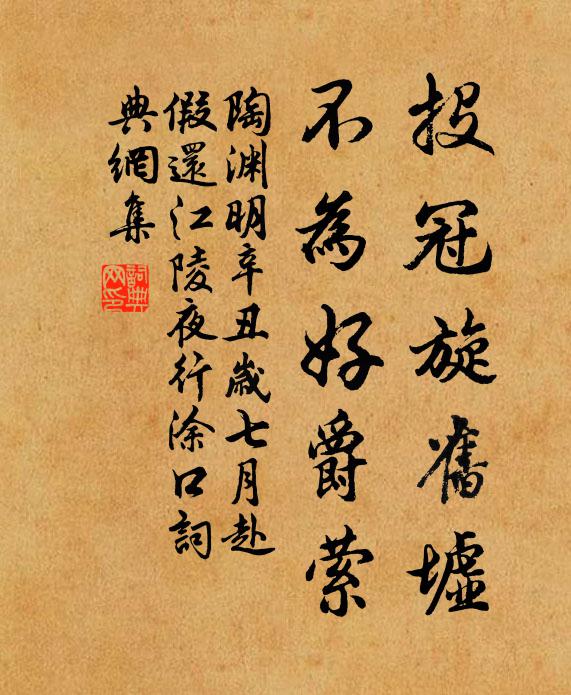 投冠旋舊墟
不為好爵縈
陶渊明辛丑歲七月赴
假還江陵夜行涂口詞
典網集
詞典网印